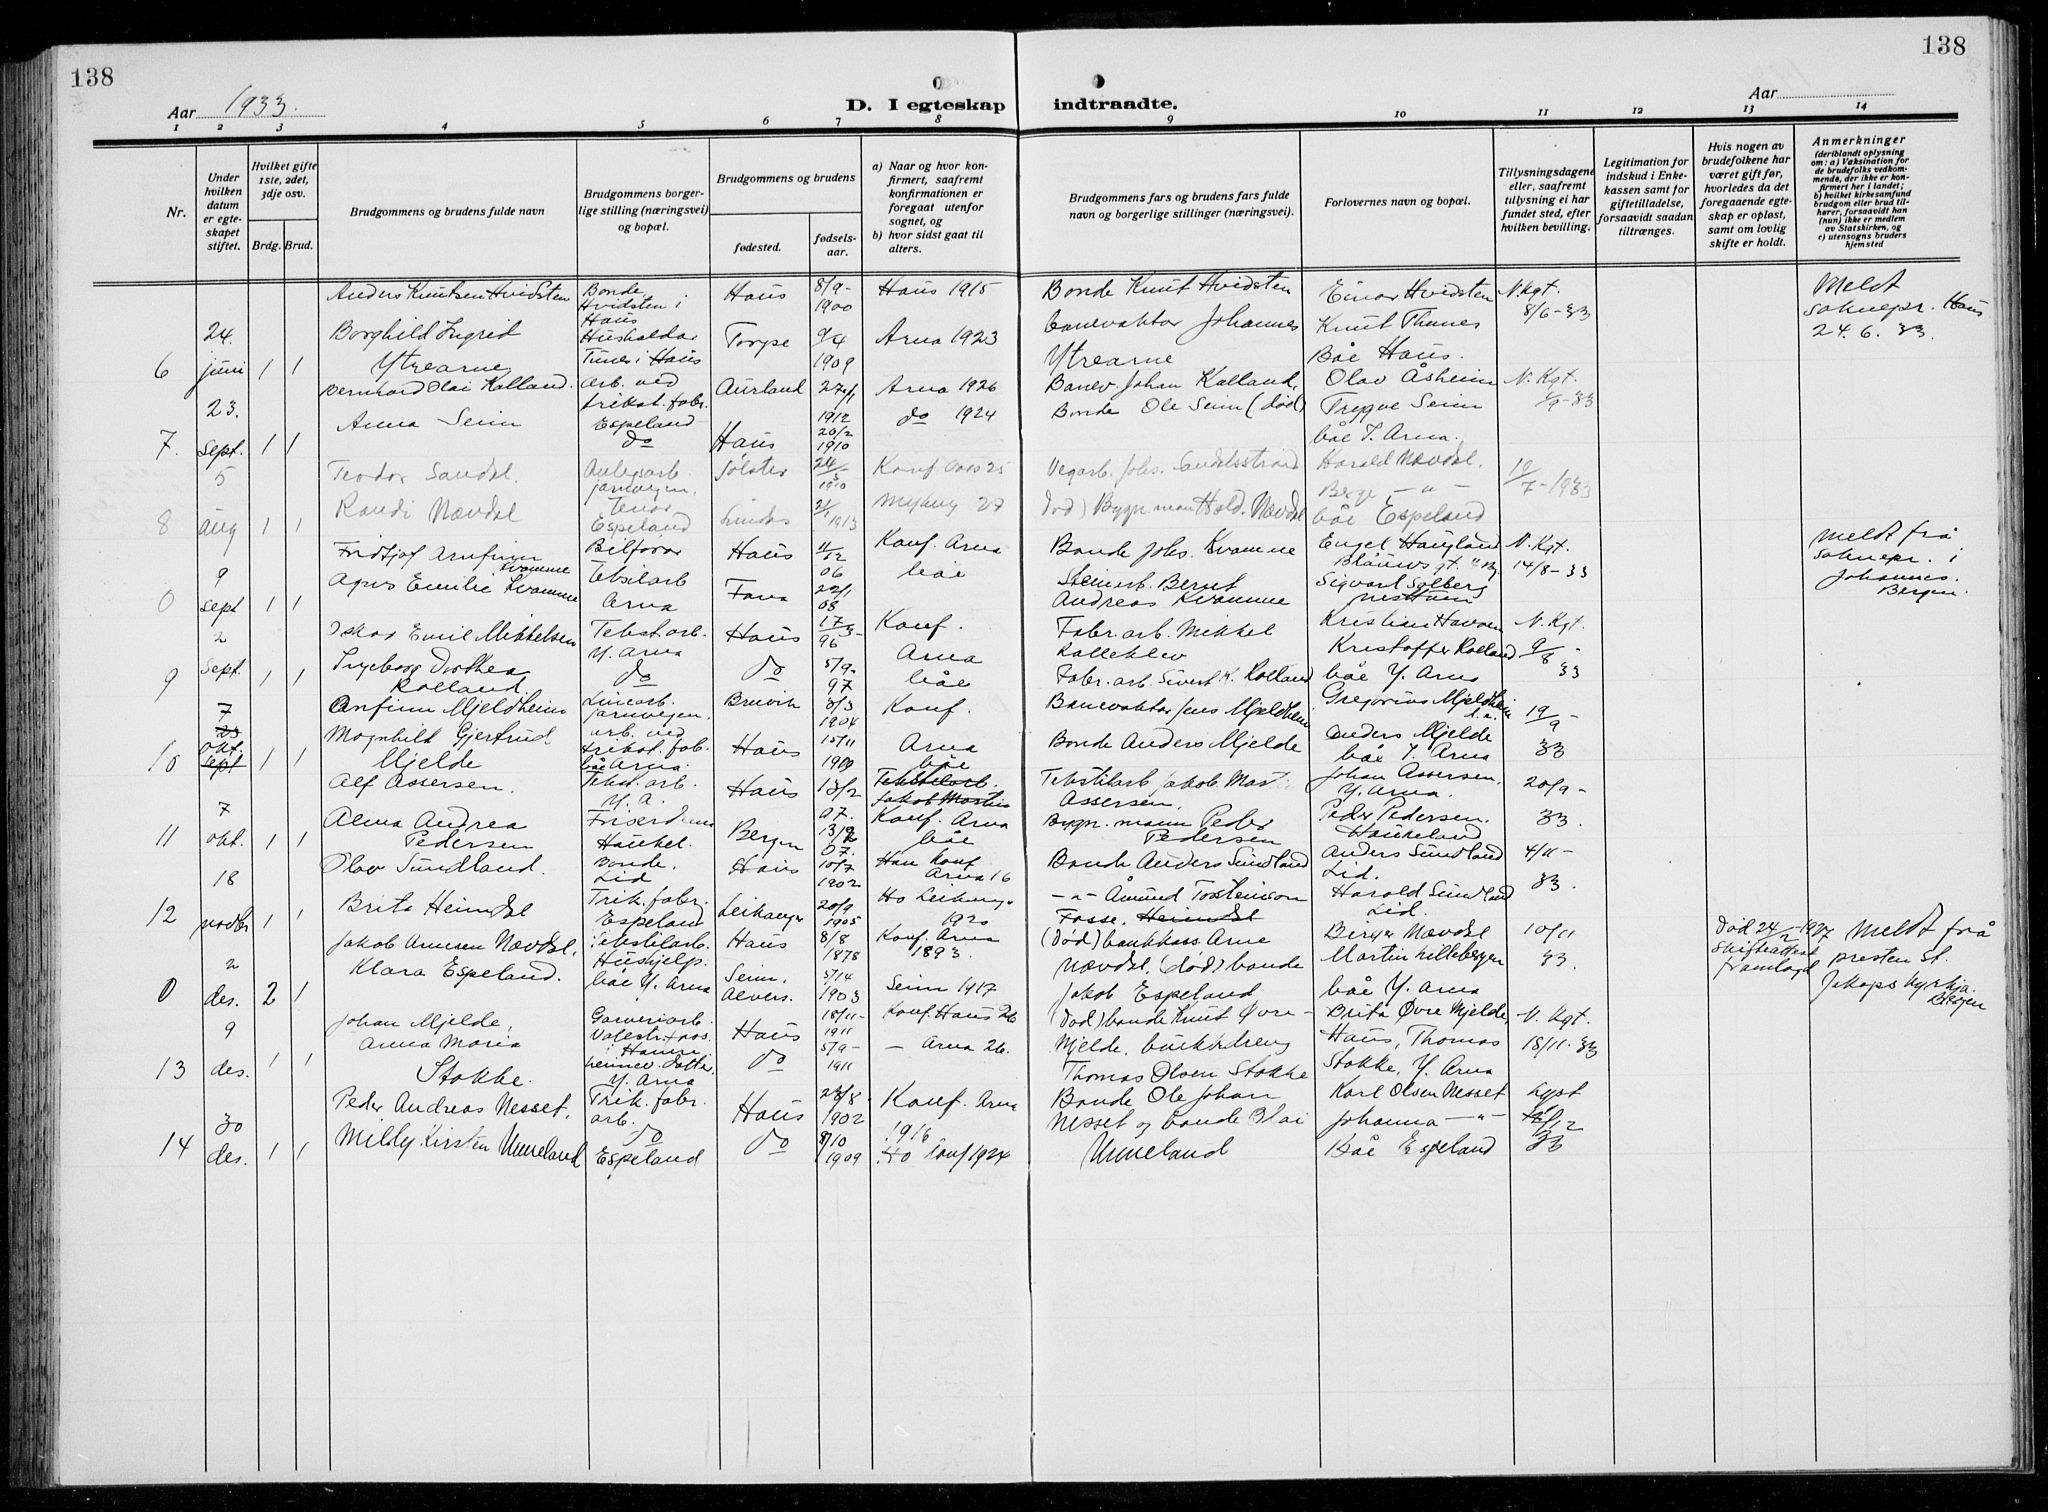 138
138
Aar 1933.
D. I egteskap indtraadte.
Aar
1 2 3 4 5 6 7 8 9 10 11 12 13 14
Nr.
Under hvilken datum er egteskapet stiftet.
Hvilket gifte 1ste, 2det, 3dje osv.
Brdg. Brud.
Brudgommens og brudens fulde navn
Brudgommens borgerlige stilling (næringsvei) og bopæl.
Brudgommens og brudens
fødested.
fødselsaar.
a) Naar og hvor konfirmert, saafremt konfirmationen er foregaat utenfor sognet, og
b) hvor sidst gaat til alters.
Brudgommens fars og brudens fars fulde navn og borgerlige stillinger (næringsvei).
Forlovernes navn og bopæl.
Tillysningsdagene eller, saafremt tillysning ei har fundet sted, efter hvilken bevilling.
Legitimation for indskud i Enkekassen samt for giftetilladelse, forsaavidt saadan tiltrænges.
Hvis nogen av brudefolkene har været gift før, hvorledes da det foregaaende egteskap er opløst, samt om lovlig skifte er holdt.
Anmerkninger
(deriblandt oplysning om: a) Vaksination for de brudefolks vedkommende, der ikke er konfirmert her i landet; b) hvilket kirkesamfund brudgom eller brud tilhører, forsaavidt han (hun) ikke er medlem av Statskirken, og c) utensogns bruders hjemsted
6 24. juni 1 1
Anders Knutsen Hvidsten
Borghild Ingrid Ytrearne
Bonde Hvidsten i Haus
Husholdar Tunes i Haus
Haus 8/9-1900
Torpe 9/4 1909
Haus 1915
Arna 1923
Bonde Knut Hvidsten
banevaktar Johannes Ytrearne
Einar Hvidsten
Knut Thunes
Båe Haus.
N. Kgt. 8/6-33
Meldt soknepr. Haus 24.6.33.
7. 23. Sept. 1 1
Bernhard Olai Kalland.
Anna Seim
arb. ved trikot. fabr. Espeland
do
Aurland 27/1 1912
Haus 20/2 1910
Arna 1926
do 1924
Banev. Johan Kalland,
Bonde Ole Seim (død)
Olav Åsheim
Trygve Seim
båe I. Arna.
N. Kgt. 1/9-33
8 5 aug 1 1
Teodor Sandal.
Randi Nævdal
Anlegsarb. jarnvegen.
Espeland
Jølster 24/3 1910
1913
Konf 25
Myking 27
Vegarb. Johs. Sandalsstrand
død) Bygn. mann Hald. Nævdal
Harald Nævdal.
Berge -"-
båe Espeland
10/7-1933
0 9 sept 1 1
Fridtjof Arnfinn Kvamme
Agnes Emilie Kvamme
Bilførar
Tekstilarb Arna
Haus 11/12 06
Fana 22/1 08
Konf. Arna
båe
Bonde Johs. Kvamme
Steinarb. Bernt Andreas Kvamme
Engel Haugland
Sigvart Solberg
Nesttun
N. Kgt. 14/8-33
Meldt frå soknepr. i Johannes. Bergen.
9 2 Sept. 1 1
Oskar Emil Mikkelsen
Ingeborg Dorthea Rolland.
Tekst. arb. Y. Arna
do
Haus 17/3- 96
do 5/9- 97
Konf. Arna
båe
Fabr. arb. Mikkel Kalleklev
Fabr. arb. Sivert K. Rolland
Kristian Havsen
Kristoffer Rolland
båe Y. Arna
N. Kgt. 9/8 - 33
10 7 23 okt. sept 1 1
Arnfinn Mjeldheim
Magnhild Gjertrud Mjelde
Linearb. jarnvegen.
arb. ved trikot. fab. båe Arna.
Bruvik 8/3 1904
Haus 15/11 1900
Konf. Arna båe
Banevaktar Jens Mjeldheim
Bonde Anders Mjelde
Gregorius Mjeldheim
Anders Mjelde
båe I. Arna
19/9 - 33
11 7 okt. 1 1
Alf Assersen.
Alma Andrea Pedersen
Tekst. arb. Y. A.
Haukel.
Haus 18/2 07.
Bergen 13/2 07.
Tekstilarb. Jakob Martin
Konf. Arna
båe
Tekstilarb Jakob Mart
Assersen.
Bygn. mann Peder Pedersen
Johan Assersen.
Y. Arna.
Peder Pedersen.
Haukeland
20/9 - 33.
12 18 novbr 1 1
Olav Sundland.
Brita Heimdal
Bonde. Lid
Trik. fabr. Espeland
Haus 10/7 1902
Leikanger 20/9 1905
Han konf Arna 16
Ho Leikange 1920
Bonde Anders Sundland
-"- Åmund Torsteinson Fosse. Heimdal
Anders Sundland
Lid.
Harald Sundland
Lid.
4/11 - 33.
0 2 des. 2 1
Jakob Arnesen Nævdal,
Klara Espeland.
Tekstilarb.
Hushjelp.
båe Y. Arna
Haus 8/8 1878
Seim, Alvers. 5/4 1903
Konf. Arna 1893.
Seim 1917
(død) bankkass. Arne Nævdal, (død) bonde Jakob Espeland
Berger Nævdal
Martin Lillebergen
båe Y. Arna
10/11 33.
død 24/2-1927
Skifteattest framlagd
Meldt frå presten St. Jakops kyrkja. Bergen
13 9 des. 1 1
Johan Mjelde,
Anna Maria Stokke.
Garveriarb. Valestr. foss. i Hamre
heimev. dotter, Y. Arna
Haus 18/11- 1911
do 5/9- 1911
Konf. Haus 26
- Arna 26.
(død) bonde Knut Øvre-Mjelde,
Thomas Olsen Stokke
Brita Øvre Mjelde,
Haus, Thomas Stokke, Y. Arna
N. Kgt. 18/11. 33
14 30 des. 1 1
Peder Andreas Nesset,
Milly Kirsten Unneland
Trik. fabr. arb.
do
Espeland
Haus 28/8 1902
do 8/10 1909
Konf. Arna 1916
Ho konf 1924
Bonde Ole Johan Nesset og bonde Olai Unneland
Karl Olsen Nesset
Johanna -"-
Båe Espeland
Lyst /12 33